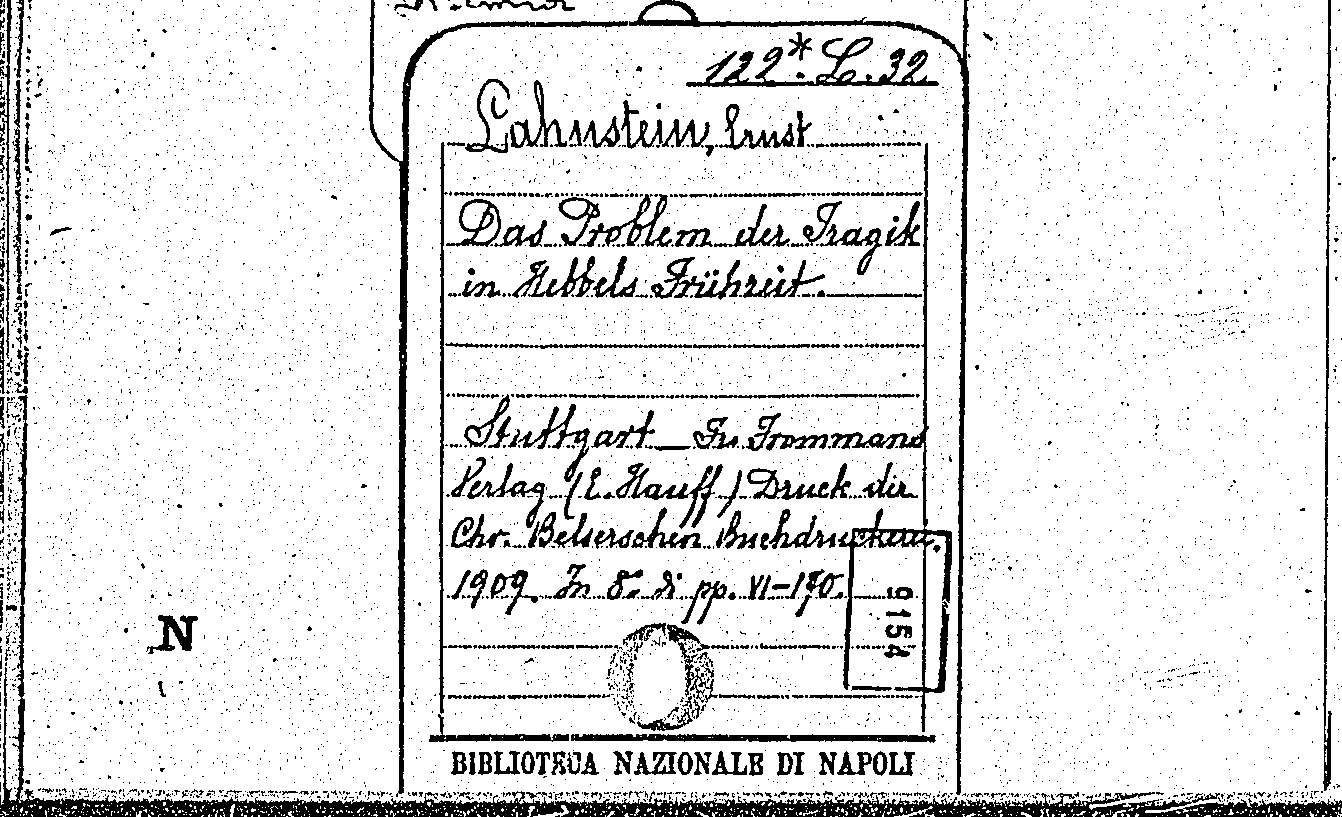 122*. L. 32
Lahnstein, Ernst
Das Problem der Tragik
in Hebbels Frühzeit.
Stuttgart — Fr. Frommans
Verlag (E. Hauff) Druck der
Chr. Belserschen Buchdruckerei.
1909. In 8.° di pp. VI-170.
9154
N
BIBLIOTECA NAZIONALE DI NAPOLI